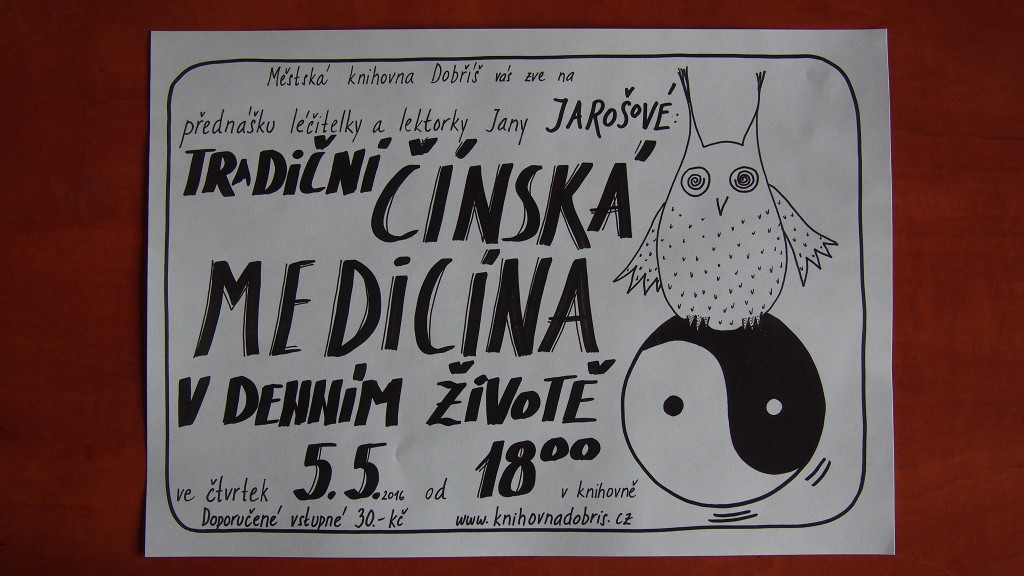 Městská knihovna Dobříš vás zve na
přednášku léčitelky a lektorky Jany JAROŠOVÉ:
TRADiČNí ČÍNSKÁ
MEDiCÍNA
V DENNíM ŽiVOTĚ
ve čtvrtek 5.5.2016 od 18⁰⁰ v knihovně
Doporučené vstupné 30.-kč www.knihovnadobris.cz